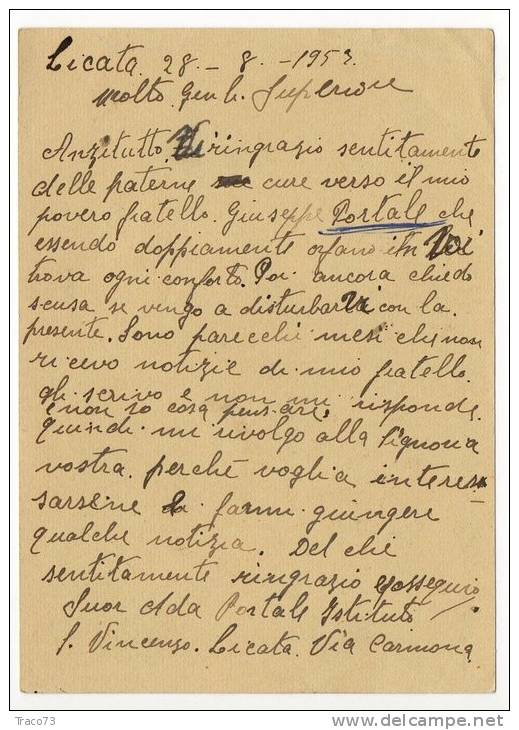 Licata. 28 - 8. - 1953.
Molto Gen l. Superiore
Anzitutto. Vi ringrazio sentitamente
delle paterne cure verso il mio
povero fratello. Giuseppe Portale che
essendo doppiamente orfano in Voi
trova ogni conforto. Poi ancora chiedo
scusa se vengo a disturbarVi con la
presente. Sono parecchi mesi che non
ricevo notizie di mio fratello.
gli scrivo e non mi risponde
e non so cosa pensare,
quindi mi rivolgo alla Signoria
vostra. perché voglia interes-
sarsene a farmi giungere
qualche notizia. Del che
sentitamente ringrazio ossequio
Suor Ada Portale Istituto
S. Vincenzo. Licata. Via Carmona.
Traco73
www.delcampe.net